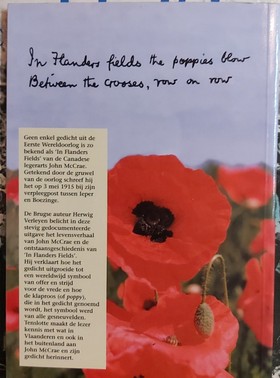 In Flanders fields the poppies blow
Between the crosses, row on row
Geen enkel gedicht uit de
Eerste Wereldoorlog is zo
bekend als 'In Flanders
Fields' van de Canadese
legerarts John McCrae.
Getekend door de gruwel
van de oorlog schreef hij
het op 3 mei 1915 bij zijn
verpleegpost tussen Ieper
en Boezinge.
De Brugse auteur Herwig
Verleyen belicht in deze
stevig gedocumenteerde
uitgave het levensverhaal
van John McCrae en de
ontstaansgeschiedenis van
'In Flanders Fields'.
Hij verklaart hoe het
gedicht uitgroeide tot
een wereldwijd symbool
van offer en strijd
voor de vrede en hoe
de klaproos (of poppy),
die in het gedicht genoemd
wordt, het symbool werd
van alle gesneuvelden.
Tenslotte maakt de lezer
kennis met wat in
Vlaanderen en ook in
het buitenland aan
John McCrae en zijn
gedicht herinnert.